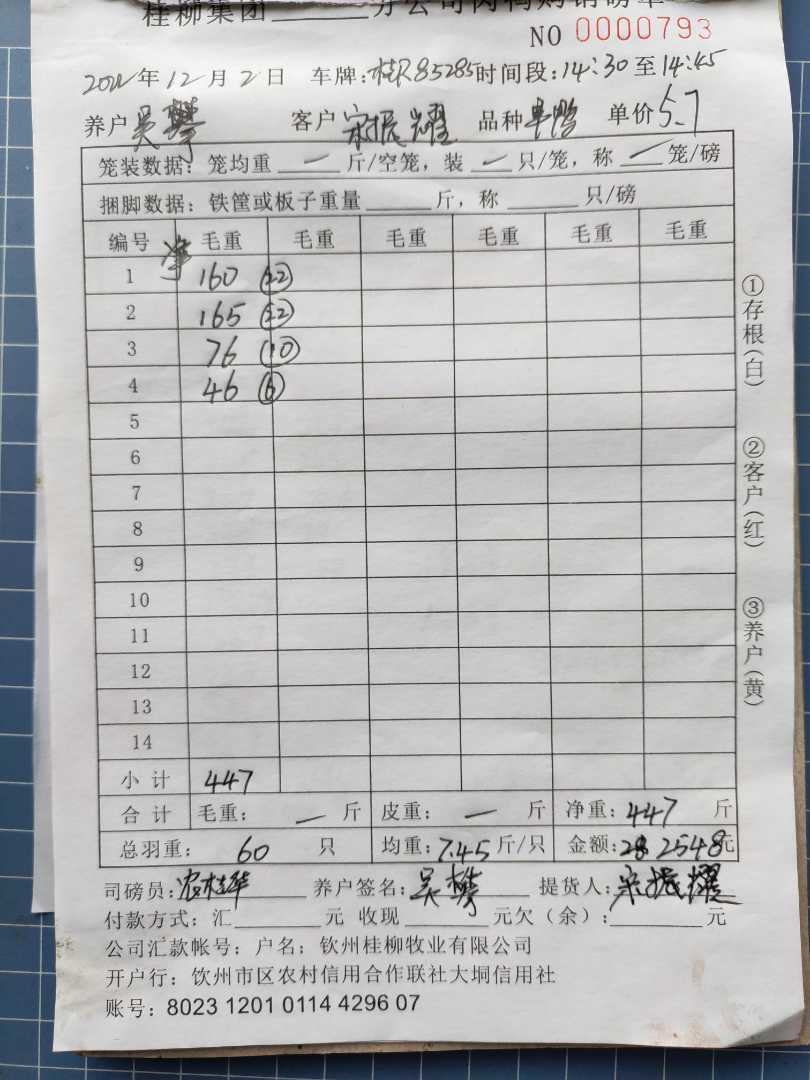 桂柳集团______分公司肉鸭购销磅单
NO 0000793
2022年12月2日 车牌:桂R85285时间段:14:30至14:45
养户吴攀 客户宋振耀 品种 单价5.7
笼装数据:笼均重 一 斤/空笼,装 一 只/笼,称 一 笼/磅
捆脚数据:铁筐或板子重量______斤,称______只/磅
编号 净毛重 毛重 毛重 毛重 毛重 毛重
1 160 (22)
2 165 (22)
3 76 (10)
4 46 (6)
5
6
7
8
9
10
11
12
13
14
小计 447
合计 毛重: 一 斤 皮重: 一 斤 净重:447 斤
总羽重: 60 只 均重:7.45斤/只 金额: 2548元
司磅员:农桂华 养户签名:吴攀 提货人:宋振耀
付款方式:汇______元 收现______元欠(余):______元
公司汇款帐号:户名:钦州桂柳牧业有限公司
开户行:钦州市区农村信用合作联社大垌信用社
账号:8023 1201 0114 4296 07
①存根(白)
②客户(红)
③养户(黄)